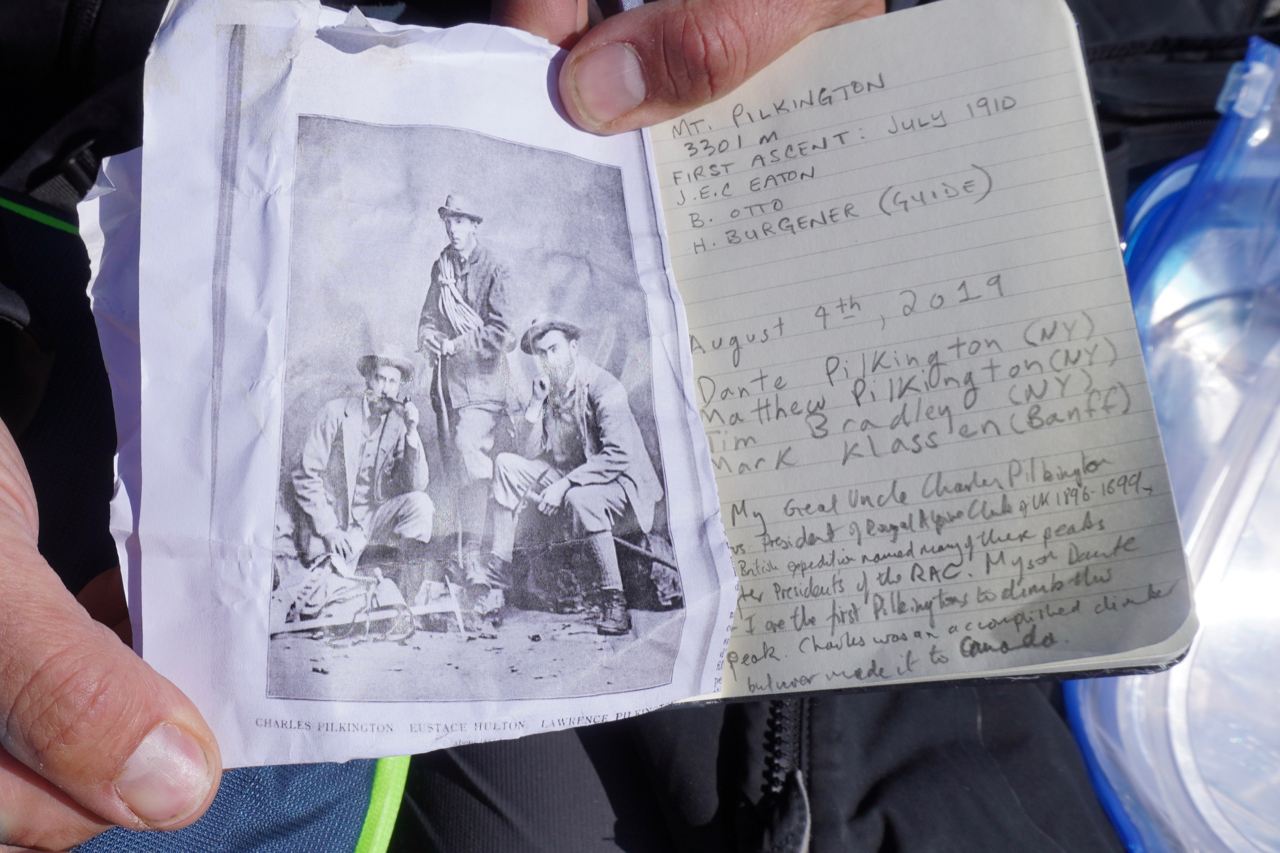 CHARLES PILKINGTON EUSTACE HULTON, LAWRENCE PILKIN
MT. PILKINGTON
3301 M
FIRST ASCENT: JULY 1910
J.E.C EATON
B. OTTO
H. BURGENER (GUIDE)
August 4th, 2019
Dante Pilkington (NY)
Matthew Pilkington (NY)
Tim Bradley (NY)
Mark Klassen (Banff)
My Great Uncle Charles Pilkington
President of Royal Alpine Club of UK 1896-1899
British expedition named many of these peaks
Presidents of the RAC. My son Dante
I are the first Pilkingtons to climb this
Peak. Charles was an accomplished climber
but never made it to Canada.